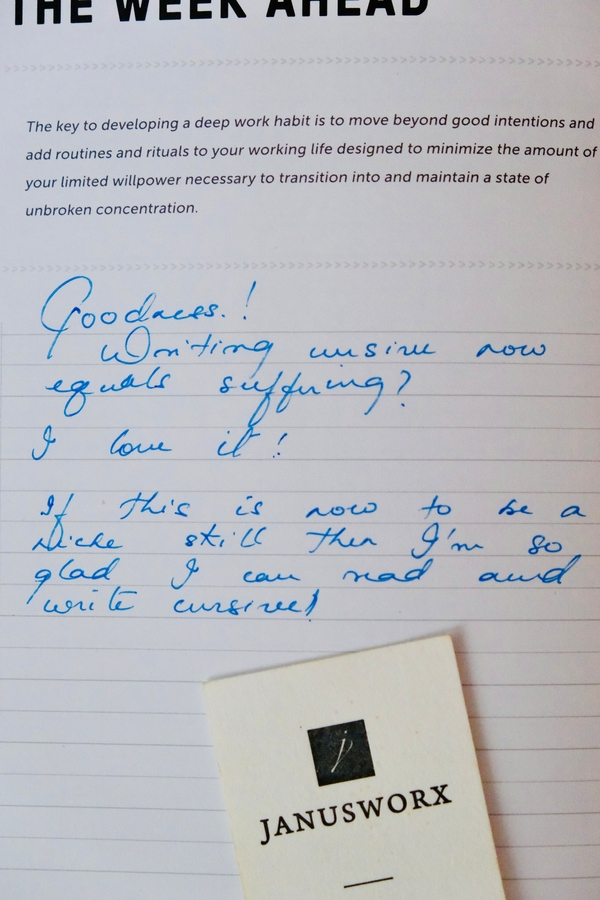 THE WEEK AHEAD
The key to developing a deep work habit is to move beyond good intentions and
add routines and rituals to your working life designed to minimize the amount of
your limited willpower necessary to transition into and maintain a state of
unbroken concentration.
Goodness.!
Writing cursive now
equals suffering?
I love it!
If this is now to be a
niche skill then I'm so
glad I can read and
write cursive!
j
JANUSWORX